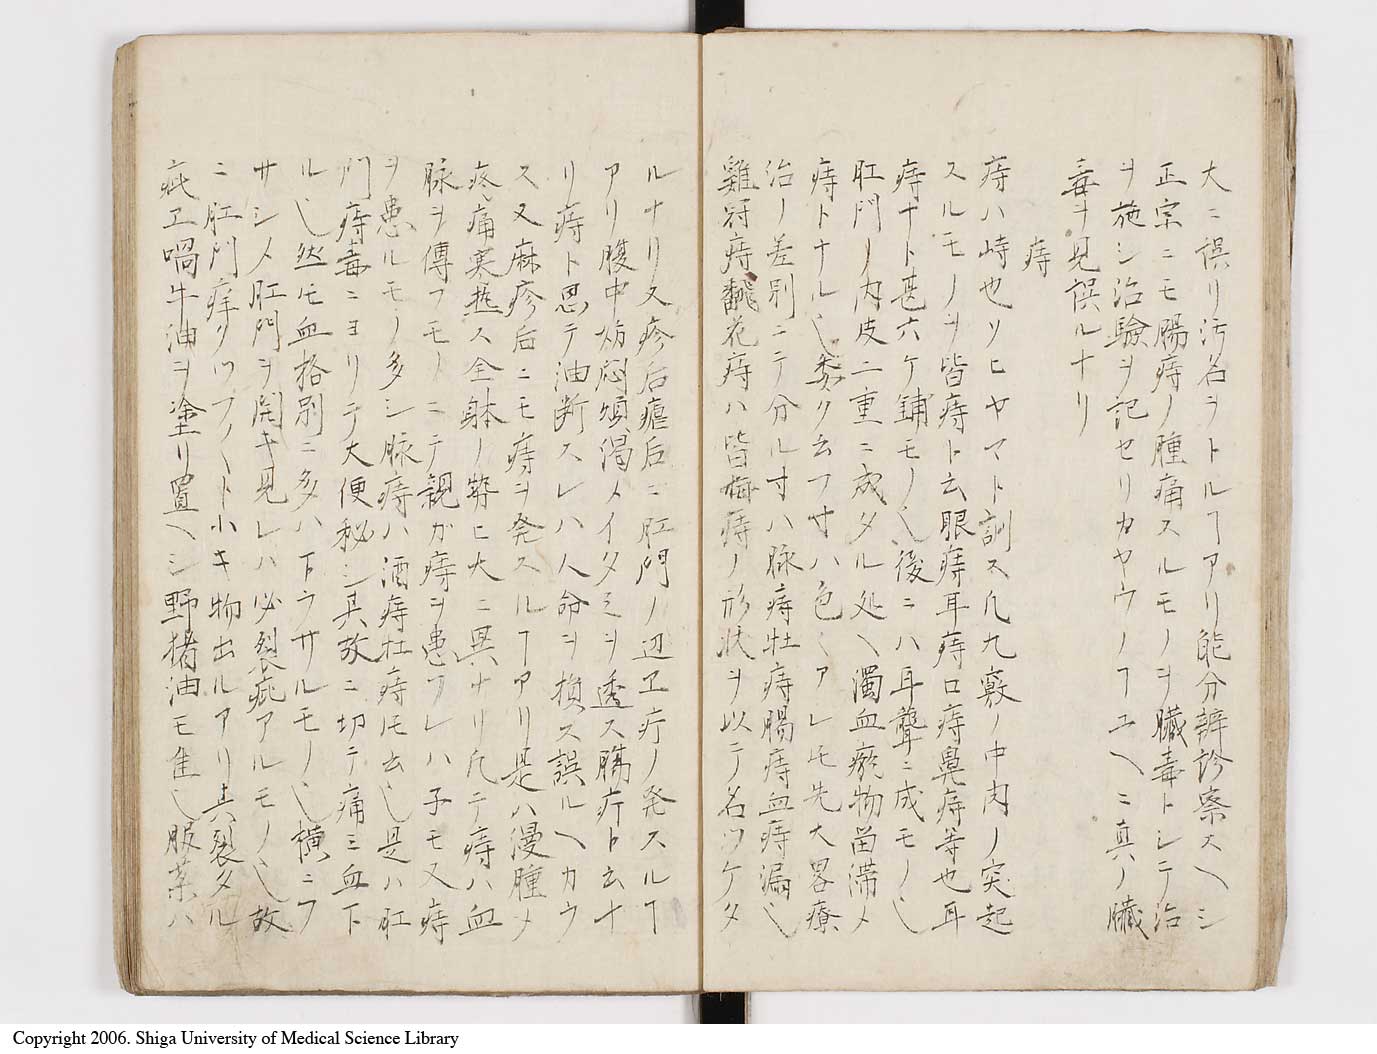 大ニ誤リ汚名ヲトルヿアリ能分辨診察スヘシ
正宗ニモ腸痔ノ腫痛スルモノヲ臓毒トシテ治
ヲ施シ治驗ヲ記セリカヤウノヿユヘニ真ノ臓
毒ヲ見誤ルナリ
痔
痔ハ峙也ソヒヤマト訓ス凡九竅ノ中肉ノ突起
スルモノヲ皆痔ト云眼痔耳痔口痔鼻痔等也耳
痔ナト甚六ケ鋪モノ也後ニハ耳聾ニ成モノ也
肛門ノ内皮二重ニ成タル処ヘ濁血瘀物畄滞メ
痔トナル也委ク云フ寸ハ色〱アレ𪜈先大畧療
治ノ差別ニテ分ル寸ハ脉痔牡痔腸痔血痔漏也
雞冠痔飜花痔ハ皆梅痔ノ形状ヲ以テ名ツケタ
ルナリ又疹后瘧后ニ肛門ノ辺ヱ疔ノ発スルヿ
アリ腹中妨悶煩渇メイタミヲ透ス腸疔ト云ナ
リ痔ト思テ油断スレハ人命ヲ損ス誤ルヘカラ
ス又麻疹后ニモ痔ヲ発スルヿアリ是ハ漫腫メ
疼痛寒熱ス全躰ノ勞ヒ大ニ異ナリ凡テ痔ハ血
脉ヲ傳フモノニテ親ガ痔ヲ患フレハ子モ又痔
ヲ患ルモノ多シ脉痔ハ酒痔牡痔𪜈云也是ハ肛
門痔毒ニヨリテ大便秘シ其故ニ切テ痛ミ血下
ル也然𪜈血格別ニ多ハ下ラサルモノ也横ニフ
サシメ肛門ヲ開キ見レハ必裂疵アルモノ也故
ニ肛門痒クツブ〱ト小キ物出ルアリ其裂タル
疵ヱ喎牛油ヲ塗リ置ヘシ野猪油モ隹也服薬ハ
Copyright 2006. Shiga University of Medical Science Library